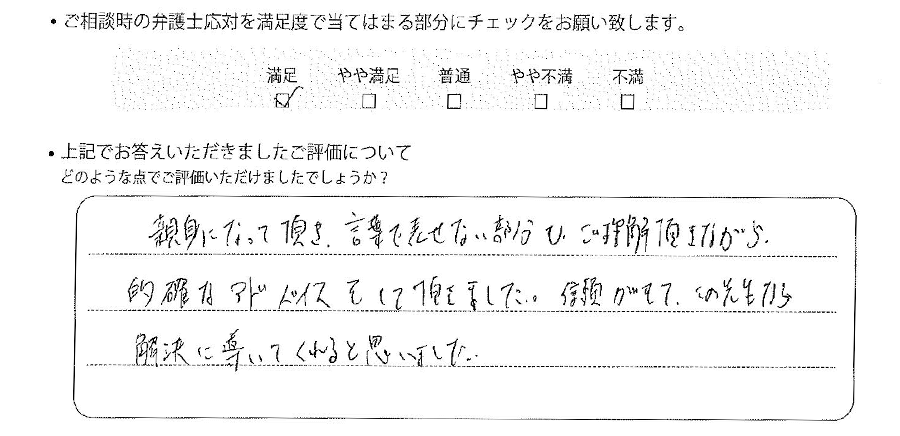 ・ご相談時の弁護士応対を満足度で当てはまる部分にチェックをお願い致します。
満足 やや満足 普通 やや不満 不満
・上記でお答えいただきましたご評価について
どのような点でご評価いただけましたでしょうか？
親身になって頂き、言葉で表せない部分も、ご理解頂きながら、
的確なアドバイスをして頂きました。信頼ができて、この先生なら
解決に導いてくれると思いました。